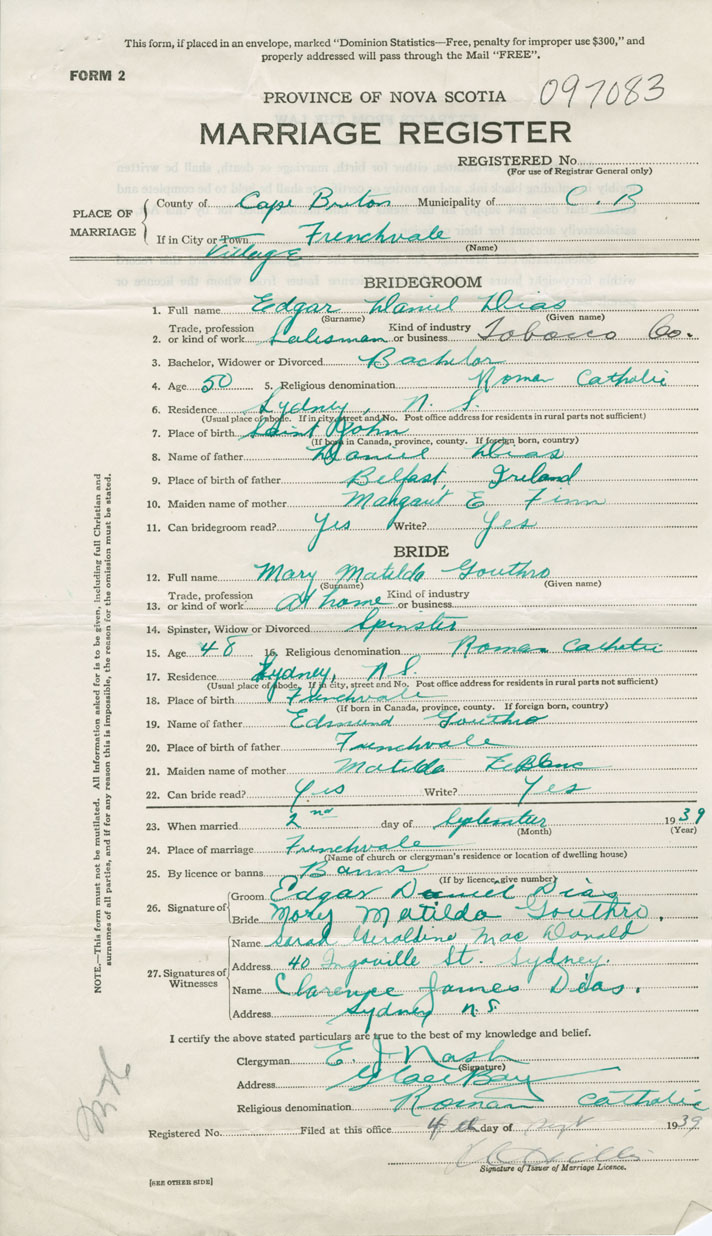 This form, if placed in an envelope, marked "Dominion Statistics—Free, penalty for improper use $300," and
properly addressed will pass through the Mail "FREE".
FORM 2
PROVINCE OF NOVA SCOTIA 097083
MARRIAGE REGISTER
REGISTERED No.
(For use of Registrar General only)
PLACE OF MARRIAGE
County of Cape Breton Municipality of C. B
If in City or Town Frenchvale
Village (Name)
BRIDEGROOM
1. Full name Edgar Daniel Dias
(Surname) (Given name)
2. Trade, profession or kind of work Salesman Kind of industry or business Tobacco Co.
3. Bachelor, Widower or Divorced Bachelor
4. Age 50 5. Religious denomination Roman Catholic
6. Residence Sydney, N. S.
(Usual place of abode. If in city, street and No. Post office address for residents in rural parts not sufficient)
7. Place of birth Saint John
(If born in Canada, province, county. If foreign born, country)
8. Name of father Daniel Dias
9. Place of birth of father Belfast, Ireland
10. Maiden name of mother Margaret E Finn
11. Can bridegroom read? Yes Write? Yes
BRIDE
12. Full name Mary Matilda Gouthro
(Surname) (Given name)
13. Trade, profession or kind of work At home Kind of industry or business
14. Spinster, Widow or Divorced Spinster
15. Age 48 16. Religious denomination Roman Catholic
17. Residence Sydney, N. S.
(Usual place of abode. If in city, street and No. Post office address for residents in rural parts not sufficient)
18. Place of birth Frenchvale
(If born in Canada, province, county. If foreign born, country)
19. Name of father Edmund Gouthro
20. Place of birth of father Frenchvale
21. Maiden name of mother Matilda LeBlanc
22. Can bride read? Yes Write? Yes
23. When married 2nd day of September 1939
(Month) (Year)
24. Place of marriage Frenchvale
(Name of church or clergyman's residence or location of dwelling house)
25. By licence or banns Banns
(If by licence, give number)
26. Signature of
Groom Edgar Daniel Dias
Bride Mary Matilda Gouthro.
27. Signatures of Witnesses
Name Sarah Geraldine Mac Donald
Address 40 Ingoville St. Sydney.
Name Clarence James Dias.
Address Sydney N. S.
I certify the above stated particulars are true to the best of my knowledge and belief.
Clergyman E. J Nash
(Signature)
Address Glace Bay
Religious denomination Roman Catholic
Registered No. Filed at this office 4th day of Sept 1939
Signature of Issuer of Marriage Licence.
[SEE OTHER SIDE]
NOTE.—This form must not be mutilated. All information asked for is to be given, including full Christian and
surnames of all parties, and if for any reason this is impossible, the reason for the omission must be stated.